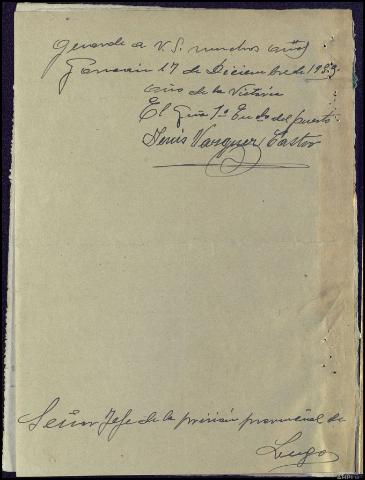 guarde a V. S. muchos años
17 de Diciembre de 1939.
Año de la Victoria
El Gua 1º Endo del puesto
Vazquez Castor
Señor Jefe de la prisión provincial de
Lugo